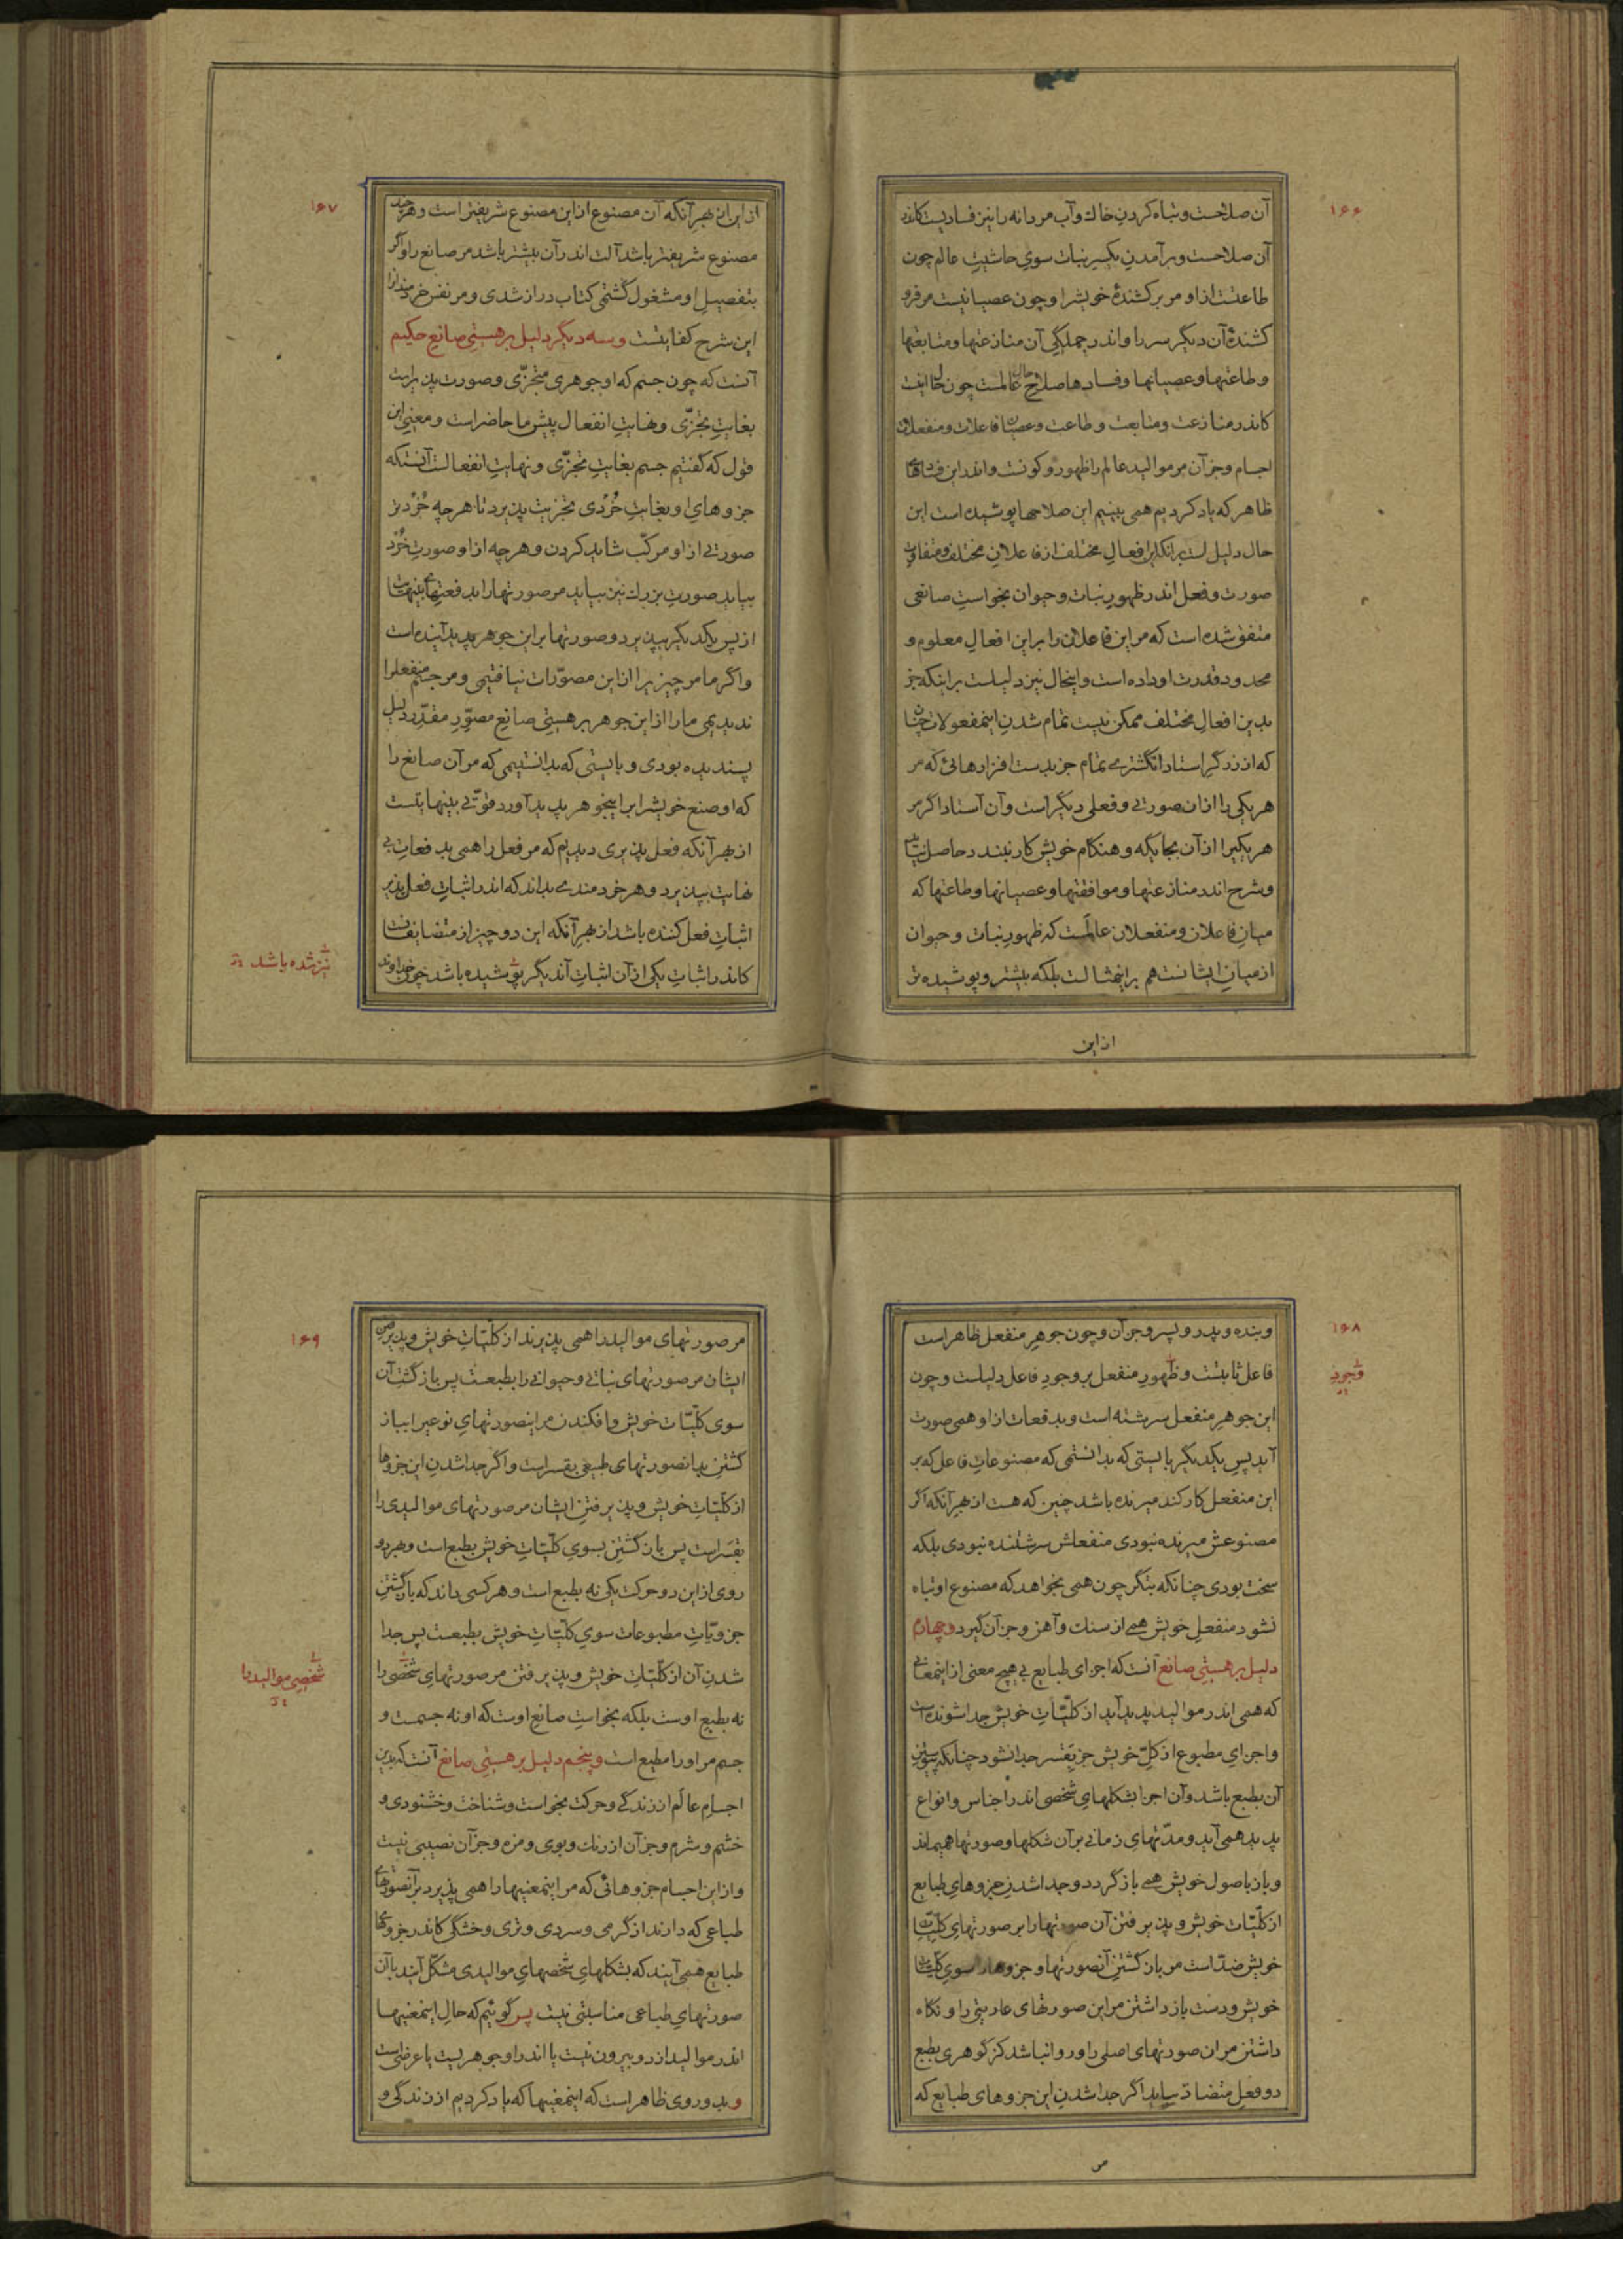 ۱۶۶
آن صلاحست و تباه کردن خاك و آب مر دانه را نیز فسادیست کاندر
آن صلاحست و برآمدن یکسر نبات سوی حاشیت عالم چون
طاعتست از او مر برکشندهٔ خویشرا و چون عصیانیست مر فرو
کشندهٔ آن دیگر سر را و اندر جملگی آن منازعتها و متابعتها
و طاعتها و عصیانها و فسادها صلاح عالمست چون حال اینست
کاندر منازعت و متابعت و طاعت و عصیان فاعلات و منفعلان
اجسام و جز آن مر موالید عالم را ظهور و کونست و اندر این فسادهای
ظاهر که یاد کردیم همی بینیم این صلاحها پوشیده است این
حال دلیل است برانکه این افعال مختلف از فاعلان مختلف و متفاوت
صورت و فعل اندر ظهور نبات و حیوان بخواست صانعی
متفق شده است که مر این فاعلان را بر این افعال معلوم و
محدود قدرت او داده است و اینحال نیز دلیلست بر اینکه جز
بدین افعال مختلف ممکن نیست تمام شدن اینمفعولات چنان
که از زرگر استاد انگشتری تمام جز بدست افزارهائی که مر
هر یکی را از ان صورتی و فعلی دیگر است و آن استاد اگر مر
هر یکیرا از آن بجایگه و هنگام خویش کار نبندد حاصل نیاید
و شرح اندر منازعتها و موافقتها و عصیانها و طاعتها که
میان فاعلان و منفعلان عالمست که ظهور نبات و حیوان
از میان ایشانست هم بر اینمثالست بلکه بیشتر و پوشیده تر
از این
۱۶۷
از این از بهر آنکه آن مصنوع از این مصنوع شریفتر است و هر چند
مصنوع شریفتر باشد آلت اندر آن بیشتر باشد مر صانع را و اگر
بتفصیل او مشغول گشتمی کتاب دراز شدی و مر نفس خردمند را
این شرح کفایتست و سه دیگر دلیل بر هستی صانع حکیم
آنست که چون جسم که او جوهری متجزّی و صورت پذیرست
بغایت متجزّی و نهایت انفعال پیش ما حاضر است و معنی این
قول که گفتیم جسم بغایت متجزّی و نهایت انفعالست آنستکه
جزوهای او بغایت خُردی تجزیت پذیرد تا هر چه خُردتر
صورتی از او مرکّب شاید کردن و هر چه از او صورت خُرد
بیاید صورت بزرك نیز بیاید مر صورتها را بدفعتهای بینهایت
از پس یکدیگر بپذیرد و صورتها بر این جوهر پدید آینده است
و اگر ما مر چیزیرا از این مصوّرات نیافتیمی و مر جسم منفعلرا
ندیدیمی ما را از این جوهر بر هستی صانع مصوّر مقدّر دلیل
پسندیده بودی و بایستی که بدانستیمی که مر آن صانع را
که او صنع خویشرا بر اینجوهر پدید آورد قوّتی بینهایتست
از بهر آنکه فعل پذیری دیدیم که مر فعل را همی بدفعات بی
نهایت بپذیرد و هر خردمندی بداند که اندر اثبات فعل پذیر
اثبات فعل کننده باشد از بهر آنکه این دو چیز از متضایفانست
کاندر اثبات یکی از آن اثبات آندیگر پوشیده باشد چون خداوند
نیز شده باشد
۱۶۸
و بنده و پدر و پسر و جز آن و چون جوهر منفعل ظاهر است
فاعل ثابتست و ظهور منفعل بر وجود فاعل دلیلست و چون
این جوهر منفعل سرشته است و بدفعات از او همی صورت
آید پس یکدیگر بایستی که بدانستمی که مصنوعات فاعل که بر
این منفعل کار کند میرنده باشد چنین که هست از بهر آنکه اگر
مصنوعش میرنده نبودی منفعلش سرشتنده نبودی بلکه
سخت بودی چنانکه بتگر چون همی بخواهد که مصنوع او تباه
نشود منفعل خویش همی از سنك و آهن و جز آن گیرد و چهارم
دلیل بر هستی صانع آنست که اجزای طبایع بی هیچ معنی از اینمعانی
که همی اندر موالید پدید آید از کلّیّات خویش جدا شونده است
و اجزای مطبوع از کلّ خویش جز بقسر جدا نشود چنانکه پیوستن
آن بطبع باشد و آن اجزا بشکلهای شخصی اندر اجناس و انواع
پدید همی آید و مدّتهای زمانی بر آن شکلها و صورتها همیماند
و باز باصول خویش همی باز گردد و جدا شدن جزوهای طبایع
از کلّیّات خویش و پذیرفتن آن صورتها را بر صورتهای کلّیّات
خویش ضدّ است مر باز گشتن آنصورتها و جزوها را سوی کلّیّات
خویش و دست باز داشتن مر این صورتهای عاریتی را و نگاه
داشتن مر ان صورتهای اصلی را و روا نباشد کز گوهری بطبع
دو فعل متضادّ بیاید اگر جدا شدن این جزوهای طبایع که
وجود
مر
۱۶۹
مر صورتهای موالید را همی پذیرند از کلّیّات خویش و پذیرفتن
ایشان مر صورتهای نباتی و حیوانی را بطبعست پس باز گشتن آن
سوی کلّیّات خویش و افکندن مر اینصورتهای نوعیرا و باز
گشتن بدانصورتهای طبیعی بقسر است و اگر جدا شدن این جزوها
از کلّیّات خویش و پذیرفتن ایشان مر صورتهای موالیدی را
بقسر است پس باز گشتن بسوی کلّیّات خویش بطبع است و بهر دو
روی از این دو حرکت یکی نه بطبع است و هر کسی داند که باز گشتن
جزویّات مطبوعات سوی کلّیّات خویش بطبعست پس جدا
شدن آن از کلّیّات خویش و پذیرفتن مر صورتهای شخصی را
نه بطبع اوست بلکه بخواست صانع اوست که او نه جسمست و
جسم مر او را مطیع است و پنجم دلیل بر هستی صانع آنست که بدین
اجسام عالم از زندگی و حرکت بخواست و شناخت و خشنودی و
خشم و شرم و جز آن از رنك و بوی و مزه و جز آن نصیبی نیست
و از این اجسام جزوهائی که مر اینمعنیها را همی پذیرد بر آنصورتهای
طباعی که دارند از گرمی و سردی و تری و خشگی کاندر جزوهای
طبایع همی آیند که بشکلهای شخصهای موالیدی مشکّل آیند با آن
صورتهای طباعی مناسبتی نیست پس گوئیم که حال اینمعنیها
اندر موالید از دو بیرون نیست یا اندر او جوهریست یا عرضی است
و بدو روی ظاهر است که اینمعنیها که یاد کردیم از زندگی و
شخصی موالید را